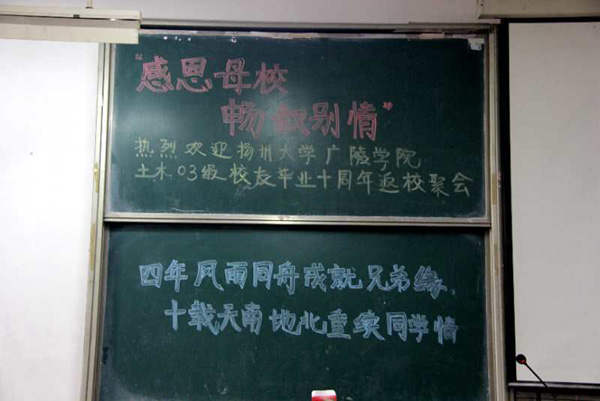 “感恩母校
畅叙别情”
热烈欢迎扬州大学广陵学院
土木03级校友毕业十周年返校聚会
四年风雨同舟成就兄弟缘，
十载天南地北重续同学情